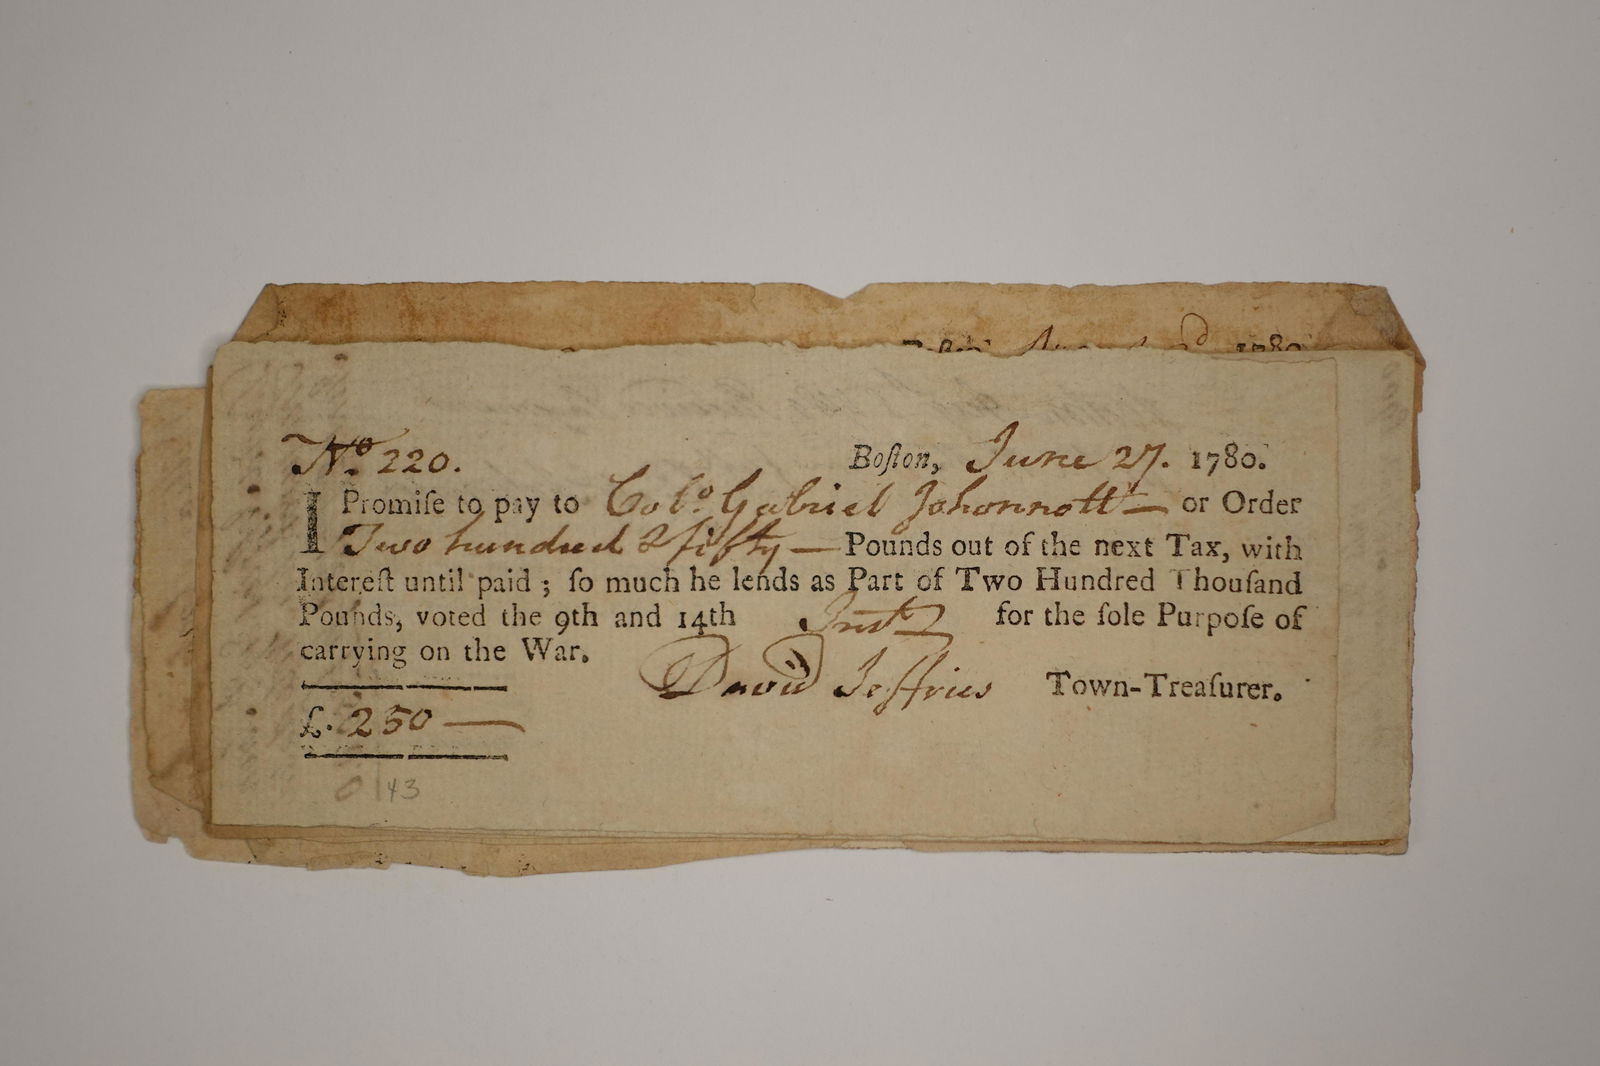 1780
No. 220. Boſton, June 27. 1780.
I Promiſe to pay to Colo. Gabriel Johonnott — or Order
Two hundred & fifty — Pounds out of the next Tax, with
Intereſt until paid ; ſo much he lends as Part of Two Hundred Thouſand
Pounds, voted the 9th and 14th Inst for the ſole Purpoſe of
carrying on the War.
David Jeffries Town-Treaſurer.
£. 250 —
0143